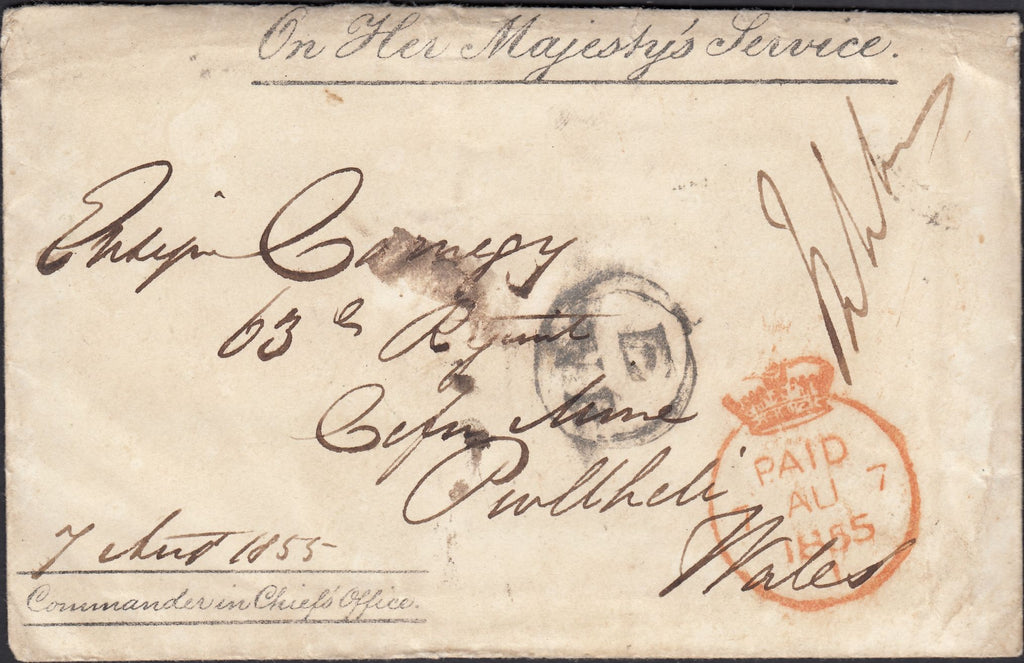 On Her Majesty's Service.
Ensign Carnegy
63d Regiment
Cefn Mine
Pwllheli
Wales
PAID
7 AU 7
1855
7 Aust 1855
Commander in Chief's Office.